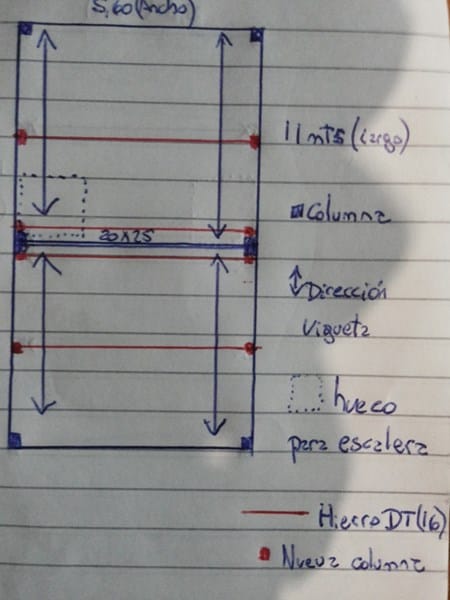 5,60 (Ancho)
11 mts (Largo)
Columna
20x25
Dirección
Vigueta
hueco
para escalera
Hierro DT(16)
Nueva columna